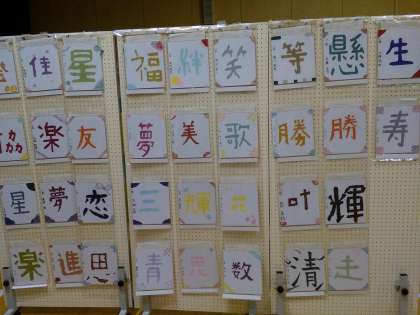 佳 星 福 絆 笑 等 懸 生
楽 友 夢 美 歌 勝 勝 寿
星 夢 恋 三 輝 叶 輝
楽 進 思 青 数 清 走